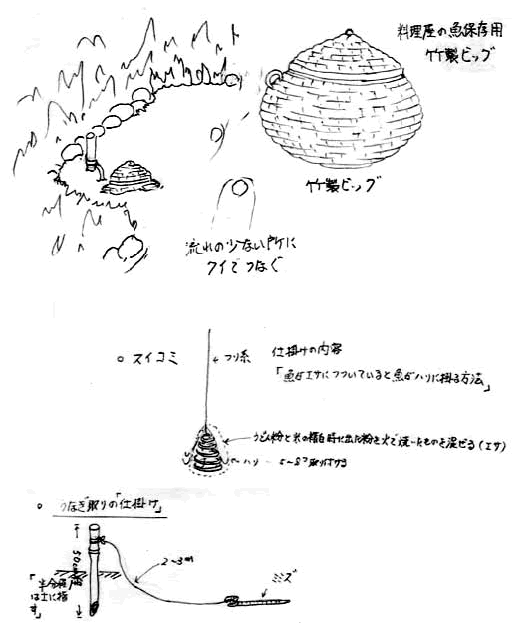 料理屋の魚保存用
竹製ビッグ
竹製ビッグ
流れの少ない所に
クイでつなぐ
○ スイコミ
ツリ糸
仕掛けの内容
「魚がエサにつついていると魚がハリに掛る方法」
うどん粉と米の精白時に出た粉を火で焼いたものを混ぜる(エサ)
ハリ 5~8コ取り付ける
○ うなぎ取りの「仕掛け」
50cm程
2~3m
ミミズ
「半分程
は土に指
す」